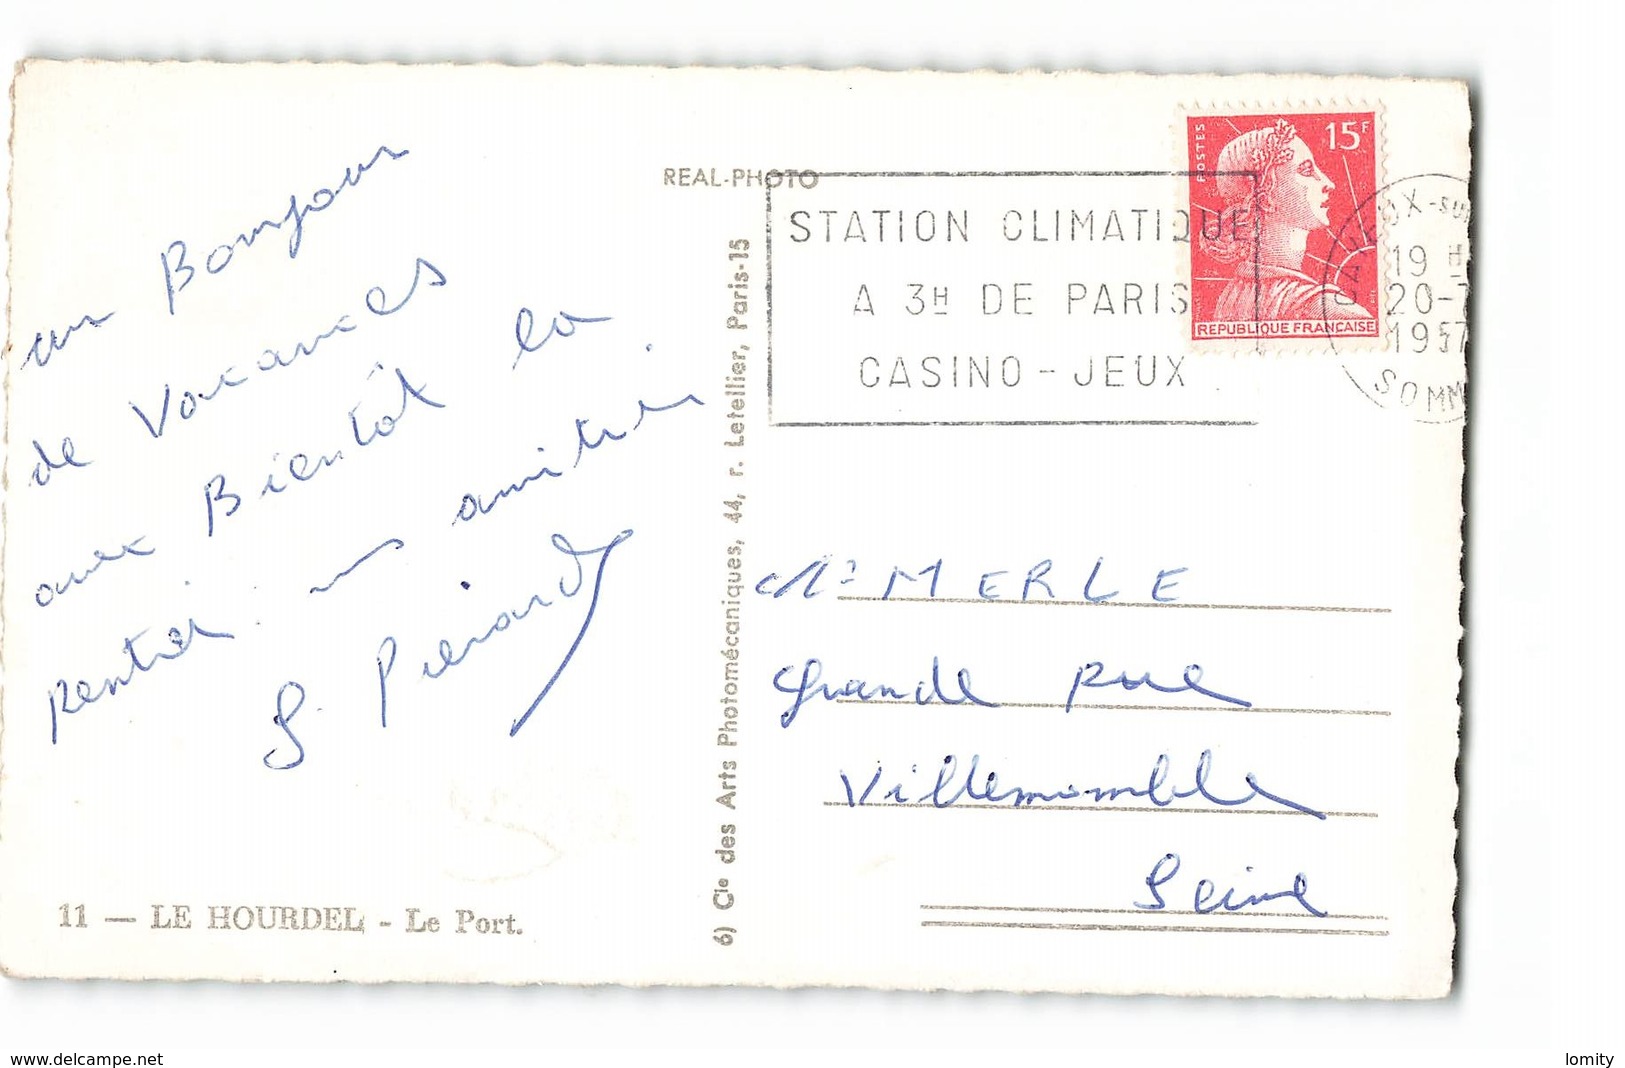 un Bonjour
de Vacances
avec Bientôt la
rentrée
amitiés
S. Pierard
11 — LE HOURDEL - Le Port.
REAL-PHOTO
6) Cie des Arts Photomécaniques, 44, r. Letellier, Paris-15
STATION CLIMATIQUE
A 3H DE PARIS
CASINO - JEUX
POSTES
15F
REPUBLIQUE FRANÇAISE
CAYEUX-SUR
19 H
20-7
1957
SOMM
Mr MERLE
Grande Rue
Villemomble
Seine
www.delcampe.net
lomity